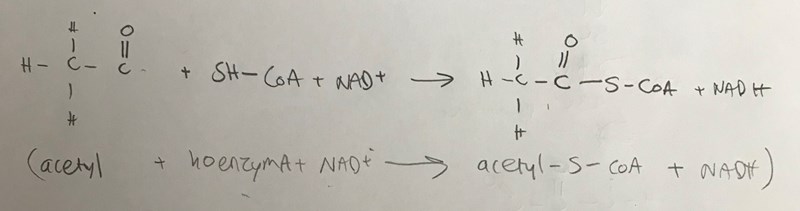 H O
H - C - C + SH - CoA + NAD+ → H - C - C - S - CoA + NADH
H H
(acetyl + hoenzymA + NAD+ → acetyl - S - CoA + NADH)